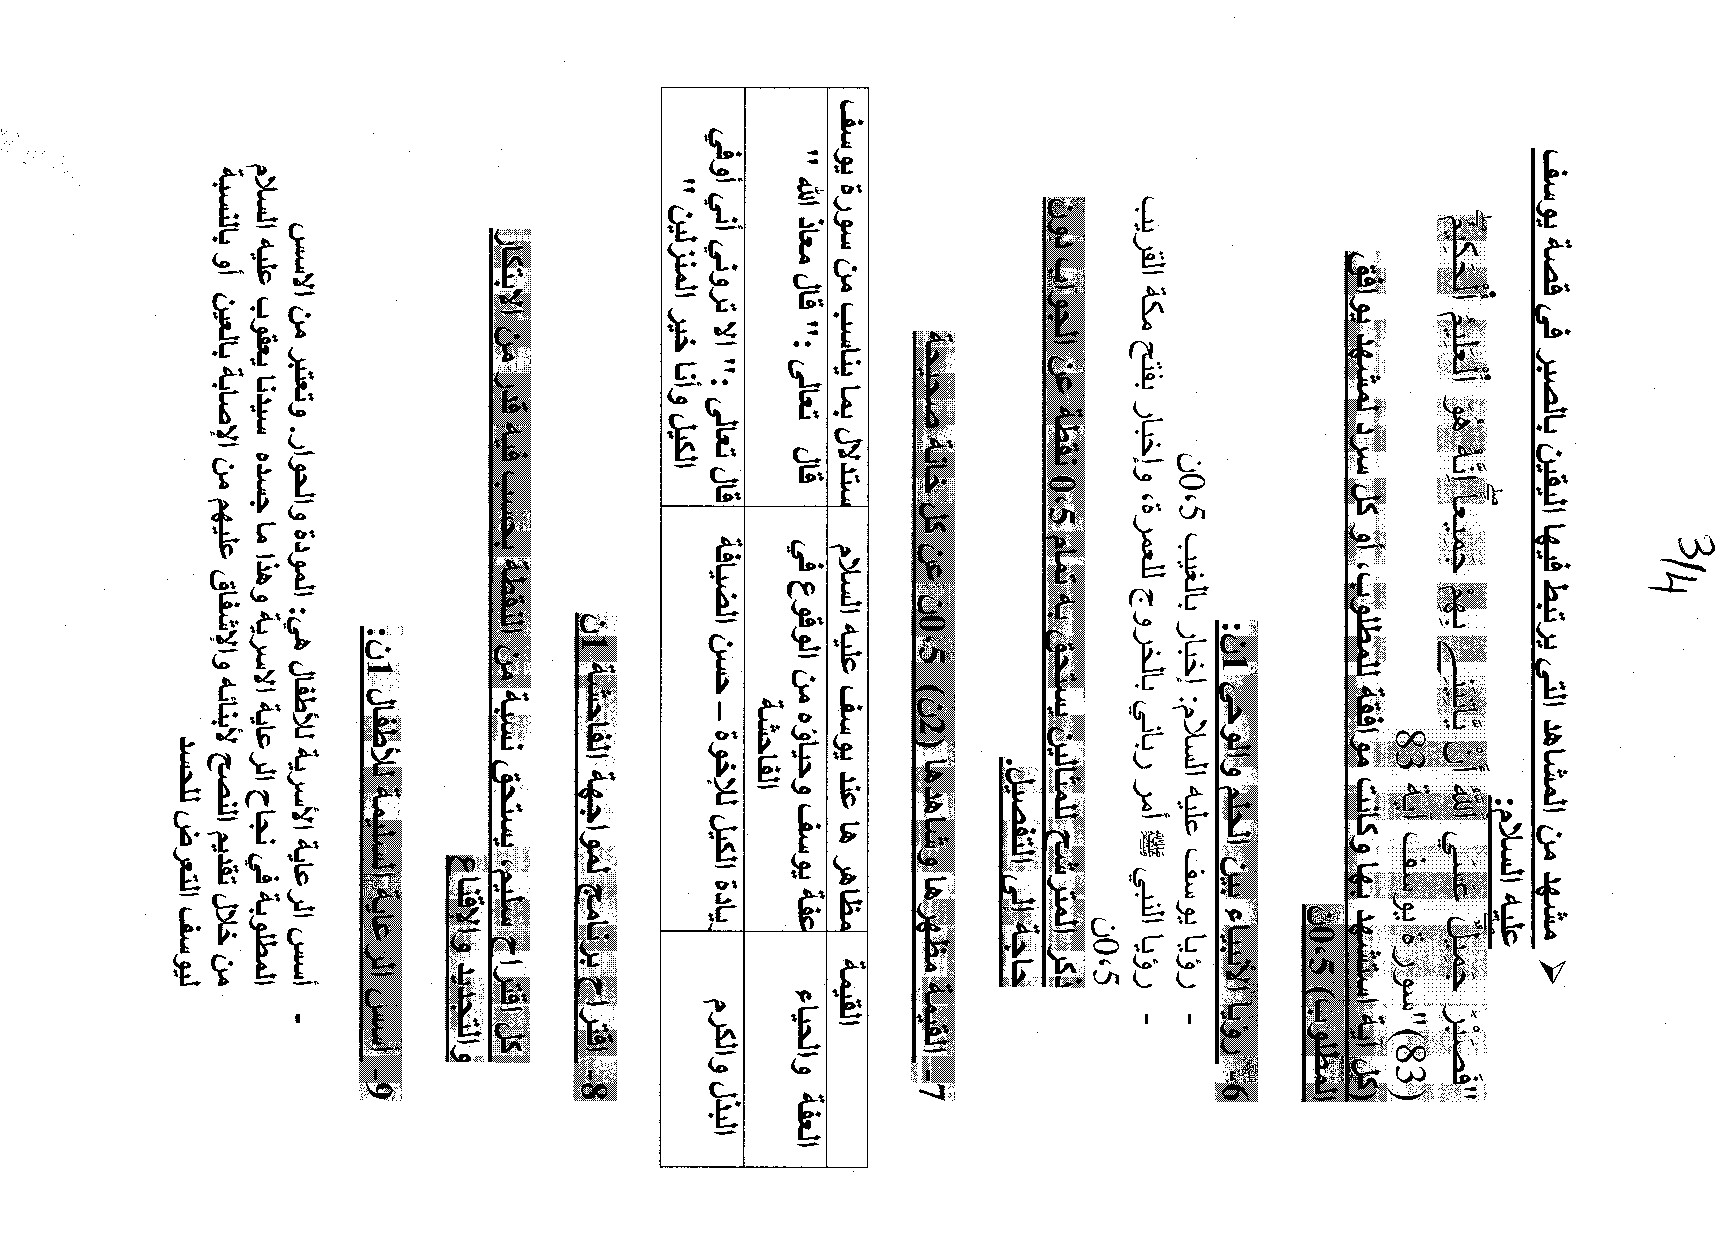 3/4
➢ مشهد من المشاهد التي يرتبط فيها اليقين بالصبر في قصة يوسف
عليه السلام:
"فَصَبْرٌ جَمِيلٌ عَسَى اللَّهُ أَنْ يَأْتِيَنِي بِهِمْ جَمِيعاً إِنَّهُ هُوَ الْعَلِيمُ الْحَكِيمُ
(83) "سورة يوسف اية 83
(كل آية استشهد بها وكانت موافقة للمطلوب، أو كل سرد لمشهد يوافق
المطلوب) 0،5ن
6- رؤيا الأنبياء بين الحلم والوحي 1ن:
- رؤيا يوسف عليه السلام: إخبار بالغيب 0،5ن
- رؤيا النبي ﷺ أمر رباني بالخروج للعمرة، وإخبار بفتح مكة القريب
0،5ن
ذكر المترشح للمثالين يستحق به تمام 0،5 نقطة عن الجواب دون
حاجة إلى التفصيل.
7- القيمة مظهرها وشاهدها (2ن) 0،5ن عن كل خانة صحيحة
القيمة مظاهر ها عند يوسف عليه السلام ستدلال بما يناسب من سورة يوسف
العفة والحياء عفة يوسف وحياؤه من الوقوع في قال تعالى :" قال معاذ الله "
الفاحشة
البذل والكرم يادة الكيل للإخوة – حسن الضيافة قال تعالى :" الا تروني أني أوفي
الكيل وأنا خير المنزلين "
8- اقتراح برنامج لمواجهة الفاحشة 1ن
كل اقتراح سليم يستحق نسبة من النقطة بحسب فيه قدر من الابتكار
والتجديد والاقناع
9- أسس الرعاية السليمة للأطفال 1ن:
- أسس الرعاية الأسرية للأطفال هي: المودة والحوار. وتعتبر من الاسس
المطلوبة في نجاح الرعاية الاسرية وهذا ما جسده سيدنا يعقوب عليه السلام
من خلال تقديم النصح لأبنائه والإشفاق عليهم من الإصابة بالعين أو بالنسبة
ليوسف التعرض للحسد